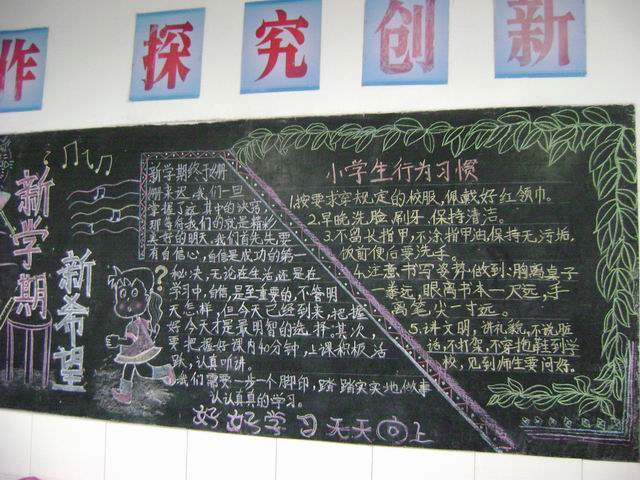 作 探 究 创 新
新学期
新希望
新学期终于姗
姗来迟,我们一旦
掌握了这其中的诀窍,
那等待我们的就是精彩
美好的明天,我们首先要
有自信心,自信是成功的第一
秘决,无论在生活,还是在
学习中,自信是至重要的,不管明
天怎样,但今天已经到来,把握
好今天才是最明智的选择.其次,
要把握好课内40分钟,上课积极活
跃,认真听讲。
我们需要一步一个脚印,踏踏实实地做事
认认真真的学习。
好好学习天天向上
小学生行为习惯
1.按要求穿规定的校服,佩戴好红领巾。
2.早晚洗脸,刷牙,保持清洁。
3.不留长指甲,不涂指甲油,保持无污垢,
做前便后要洗手。
4.注意书写姿势,做到:胸离桌子
一拳远,眼离书本一尺远,手
离笔尖一寸远。
5.讲文明,讲礼貌,不说脏
话,不打架,不穿拖鞋到学
校,见到师生要问好。